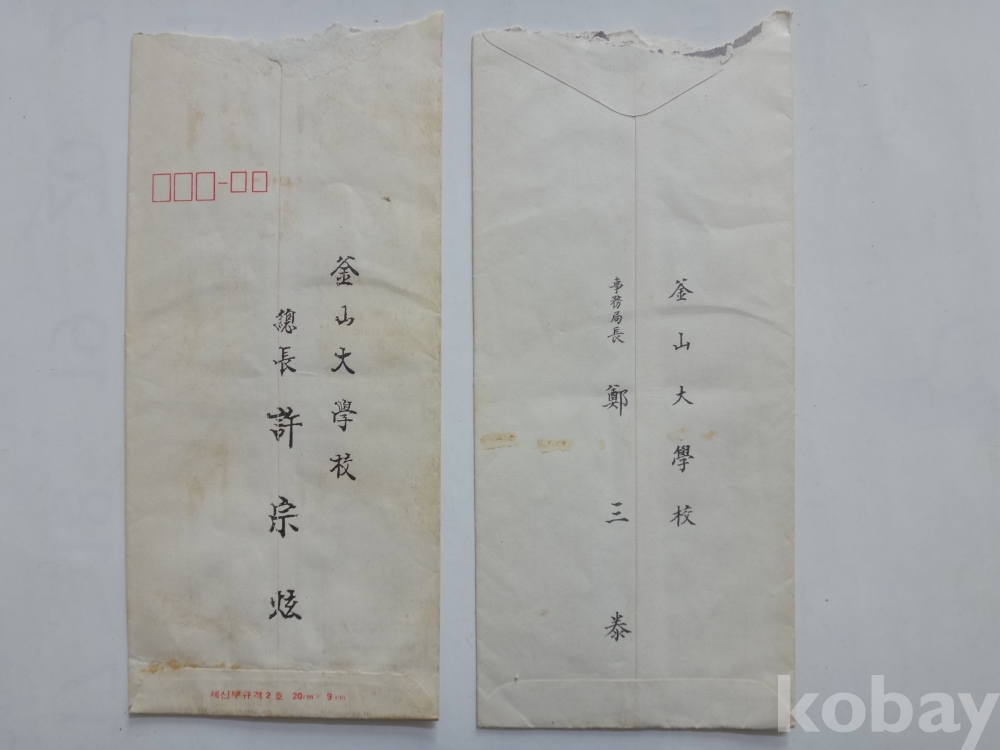 釜山大學校
總長 許宗炫
체신부규격2호 20cm × 9cm
釜山大學校
事務局長 鄭三泰
kobay